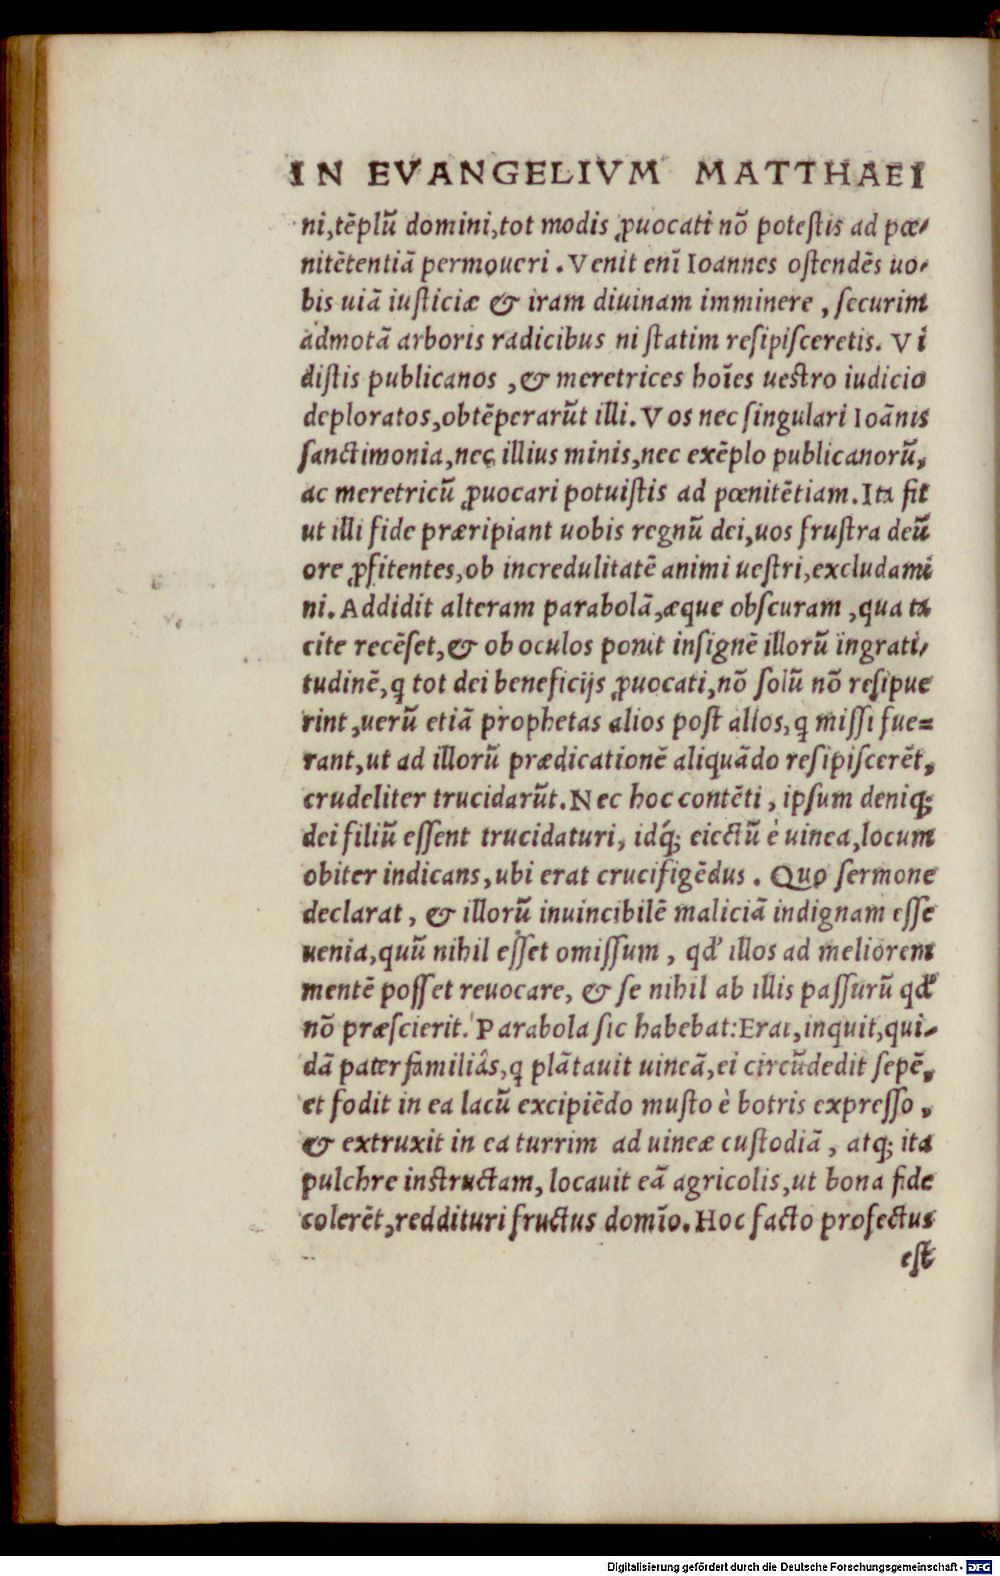 IN EVANGELIVM MATTHAEI
ni,tēplũ domini,tot modis ꝓuocati nõ potestis ad pœ-
nitētentiã permoueri. Venit enĩ Ioannes ostendēs uo-
bis uiã iusticiæ & iram diuinam imminere, securim
admotã arboris radicibus ni statim resipisceretis. Vi
distis publicanos, & meretrices hoĩes uestro iudicio
deploratos,obtēperarũt illi. Vos nec singulari Ioãnis
sanctimonia,nec illius minis,nec exēplo publicanorũ,
ac meretricũ ꝓuocari potuistis ad pœnitētiam. Ita fit
ut illi fide præripiant uobis regnũ dei,uos frustra deũ
ore ꝓfitentes,ob incredulitatē animi uestri,excludami
ni. Addidit alteram parabolã,æque obscuram, qua ta
cite recēset,& ob oculos ponit insignē illorũ ingrati-
tudinē,q̃ tot dei beneficijs ꝓuocati,nõ solũ nõ resipue
rint,uerũ etiã prophetas alios post alios,q̃ missi fue=
rant,ut ad illorũ prædicationē aliquãdo resipiscerēt,
crudeliter trucidarũt. Nec hoc contēti, ipsum deniq;
dei filiũ essent trucidaturi, idq́; eiectũ è uinea,locum
obiter indicans,ubi erat crucifigēdus. Quo sermone
declarat, & illorũ inuincibilē maliciã indignam esse
uenia,quũ nihil esset omissum, qd' illos ad meliorem
mentē posset reuocare, & se nihil ab illis passurũ qd'
nõ præscierit. Parabola sic habebat: Erat,inquit,qui-
dã pater familiâs,q̃ plãtauit uineã,ei circũdedit sepē,
et fodit in ea lacũ excipiēdo musto è botris expresso,
& extruxit in ea turrim ad uineæ custodiã, atq; ita
pulchre instructam, locauit eã agricolis,ut bona fide
colerēt,reddituri fructus domĩo. Hoc facto profectus
est
Digitalisierung gefördert durch die Deutsche Forschungsgemeinschaft - DFG